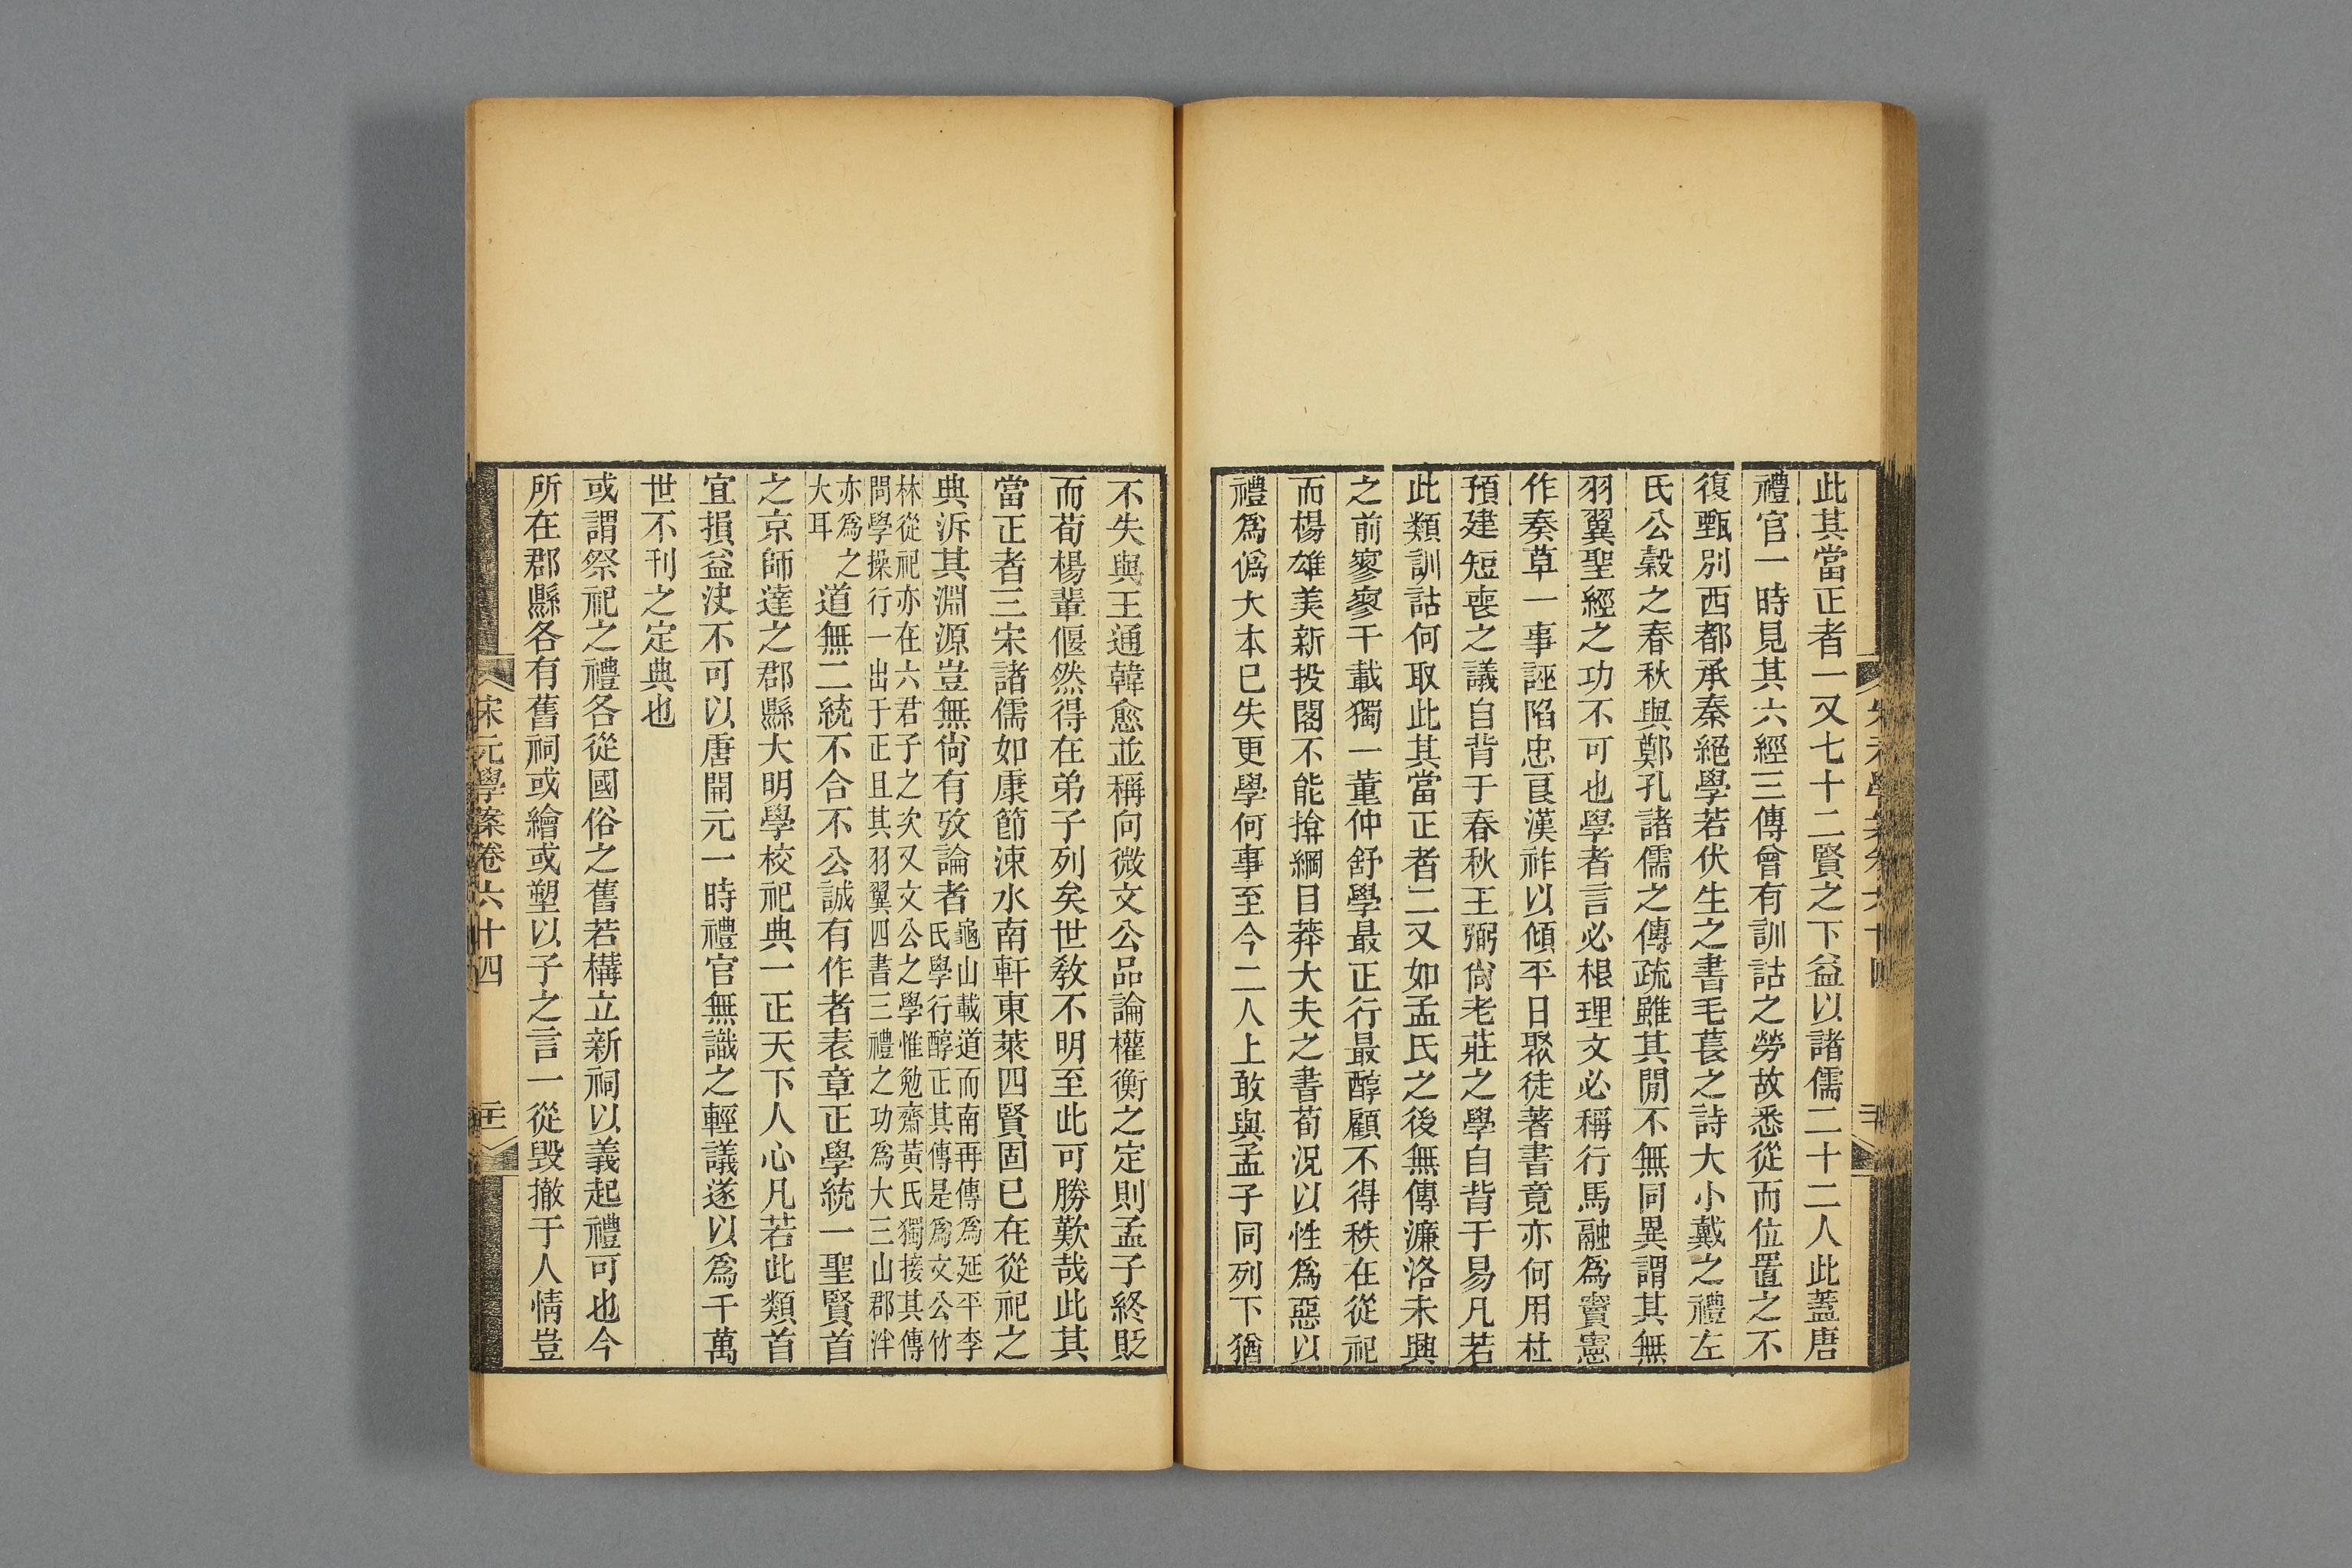 此其當正者一又七十二賢之下益以諸儒二十二人此蓋唐
禮官一時見其六經三傳曾有訓詁之勞故悉從而位置之不
復甄別西都承秦絕學若伏生之書毛萇之詩大小戴之禮左
氏公穀之春秋與鄭孔諸儒之傳疏雖其閒不無同異謂其無
羽翼聖經之功不可也學者言必根理文必稱行馬融爲竇憲
作奏草一事誣陷忠良漢祚以傾平日聚徒著書竟亦何用杜
預建短喪之議自背于春秋王弼尙老莊之學自背于易凡若
此類訓詁何取此其當正者二又如孟氏之後無傳濂洛未興
之前寥寥千載獨一董仲舒學最正行最醇顧不得秩在從祀
而楊雄美新投閣不能揜綱目莽大夫之書荀況以性爲惡以
禮爲僞大本已失更學何事至今二人上敢與孟子同列下猶
不失與王通韓愈並稱向微文公品論權衡之定則孟子終貶
而荀楊輩偃然得在弟子列矣世敎不明至此可勝歎哉此其
當正者三宋諸儒如康節涑水南軒東萊四賢固已在從祀之
典泝其淵源豈無尙有攷論者龜山載道而南再傳爲延平李
氏學行醇正其傳是爲文公竹
林從祀亦在六君子之次又文公之學惟勉齋黃氏獨接其傳
問學操行一出于正且其羽翼四書三禮之功爲大三山郡泮
亦爲之
大耳
道無二統不合不公誠有作者表章正學統一聖賢首
之京師達之郡縣大明學校祀典一正天下人心凡若此類首
宜損益決不可以唐開元一時禮官無識之輕議遂以爲千萬
世不刊之定典也
或謂祭祀之禮各從國俗之舊若構立新祠以義起禮可也今
所在郡縣各有舊祠或繪或塑以子之言一從毁撤于人情豈
宋元學案卷六十四